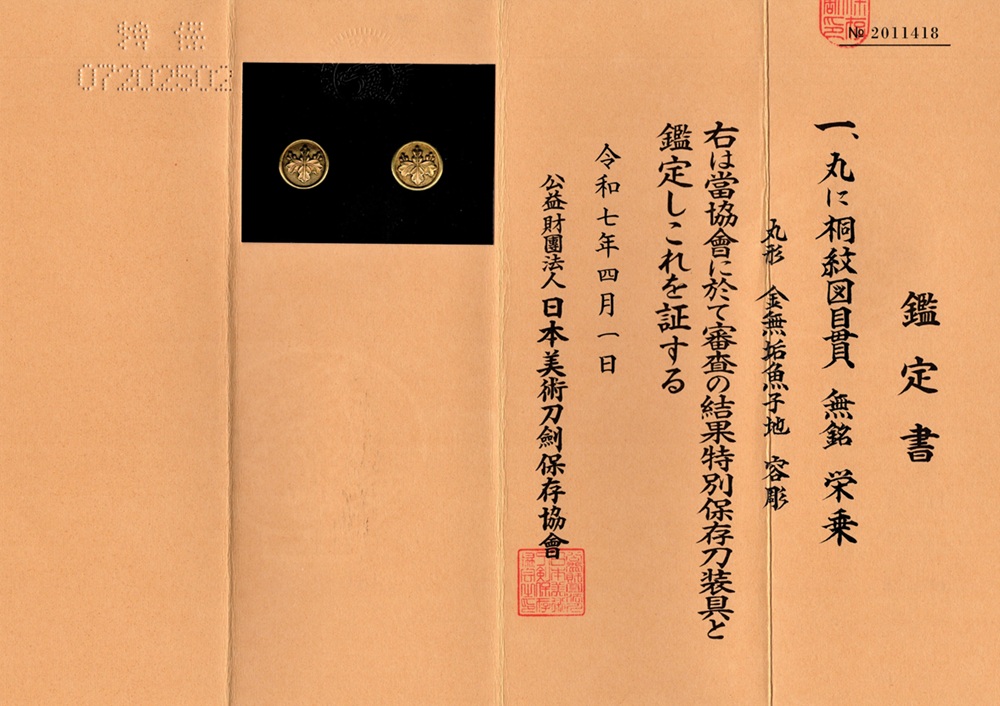 № 2011418
鑑定書
一、丸に桐紋図目貫 無銘 栄乗
丸形 金無垢魚子地 容彫
右は當協會に於て審査の結果特別保存刀装具と
鑑定しこれを証する
令和七年四月一日
公益財團法人 日本美術刀劍保存協會
特保
07202502